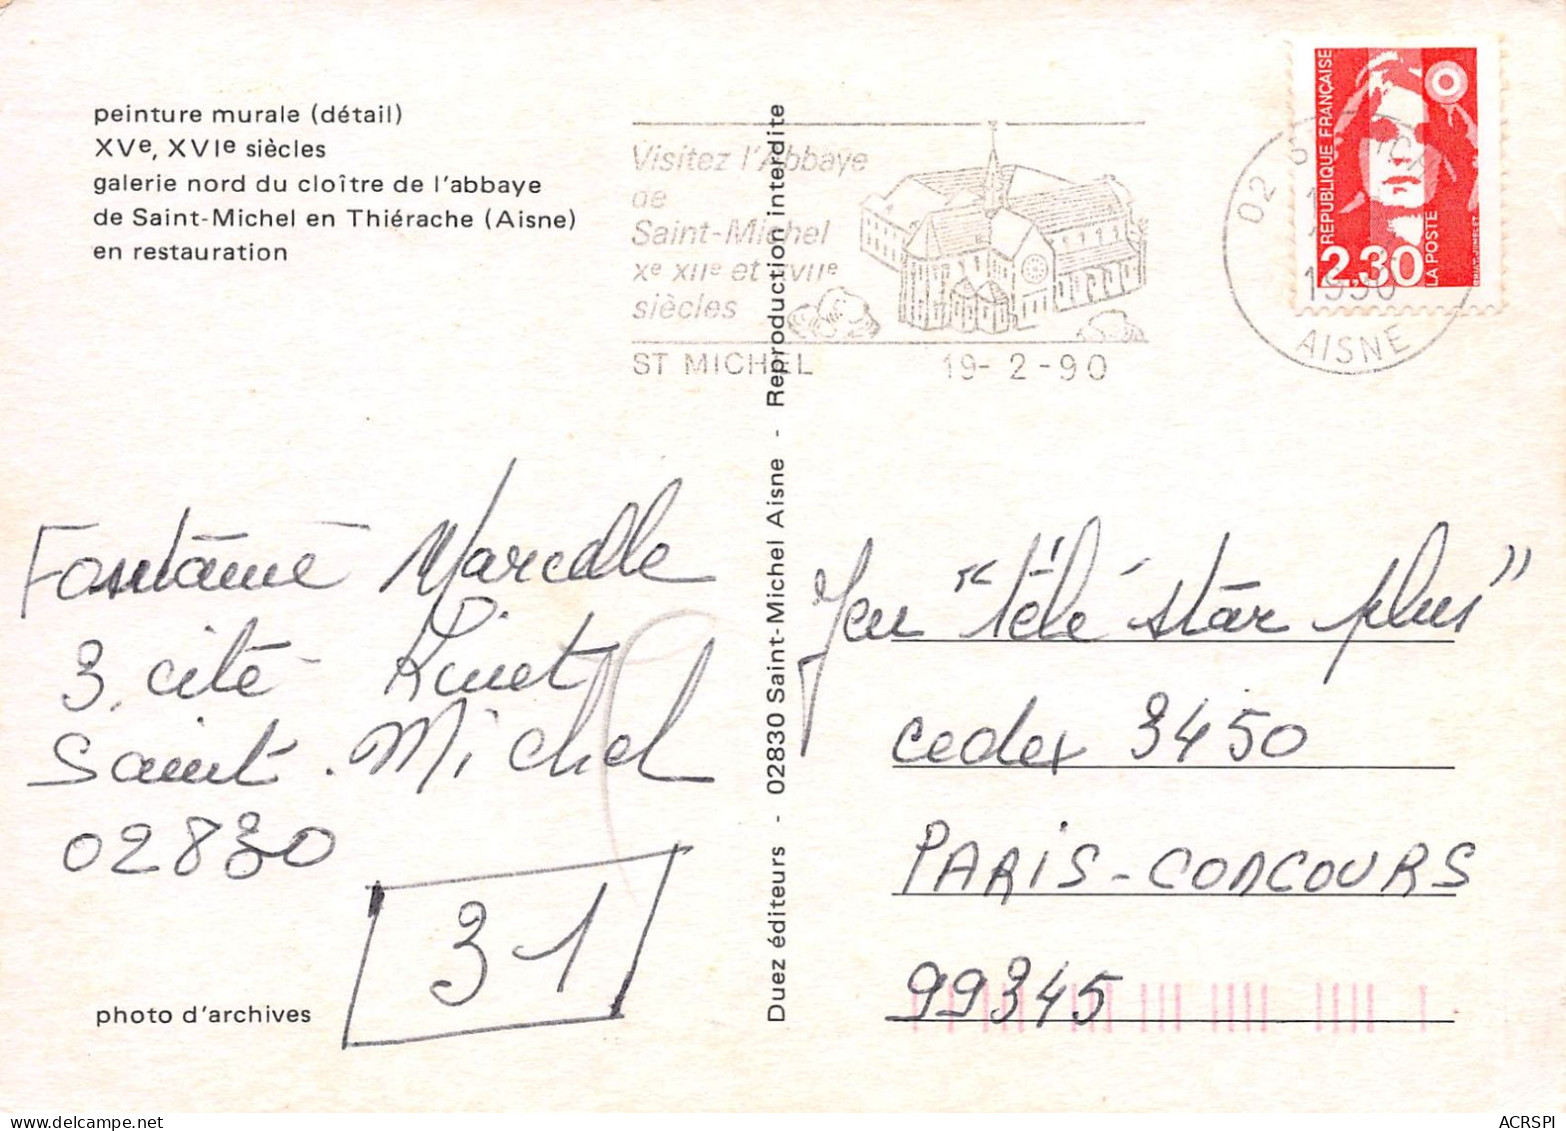 peinture murale (détail)
XVe, XVIe siècles
galerie nord du cloître de l'abbaye
de Saint-Michel en Thiérache (Aisne)
en restauration
Visitez l'Abbaye
de
Saint-Michel
Xe XIIe et XVIIe
siècles
ST MICHEL 19-2-90
02
1990
AISNE
REPUBLIQUE FRANÇAISE
2,30
LA POSTE
Duez éditeurs - 02830 Saint-Michel Aisne - Reproduction interdite
Fontaine Marcelle
3, cité Kinet
Saint-Michel
02830
31
photo d'archives
Jeu "télé star plus"
cedex 3450
PARIS-CONCOURS
99345
delcampe.net
ACRSPI